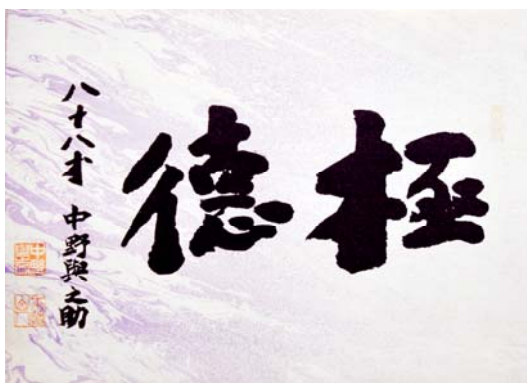 極徳
八十八才 中野與之助